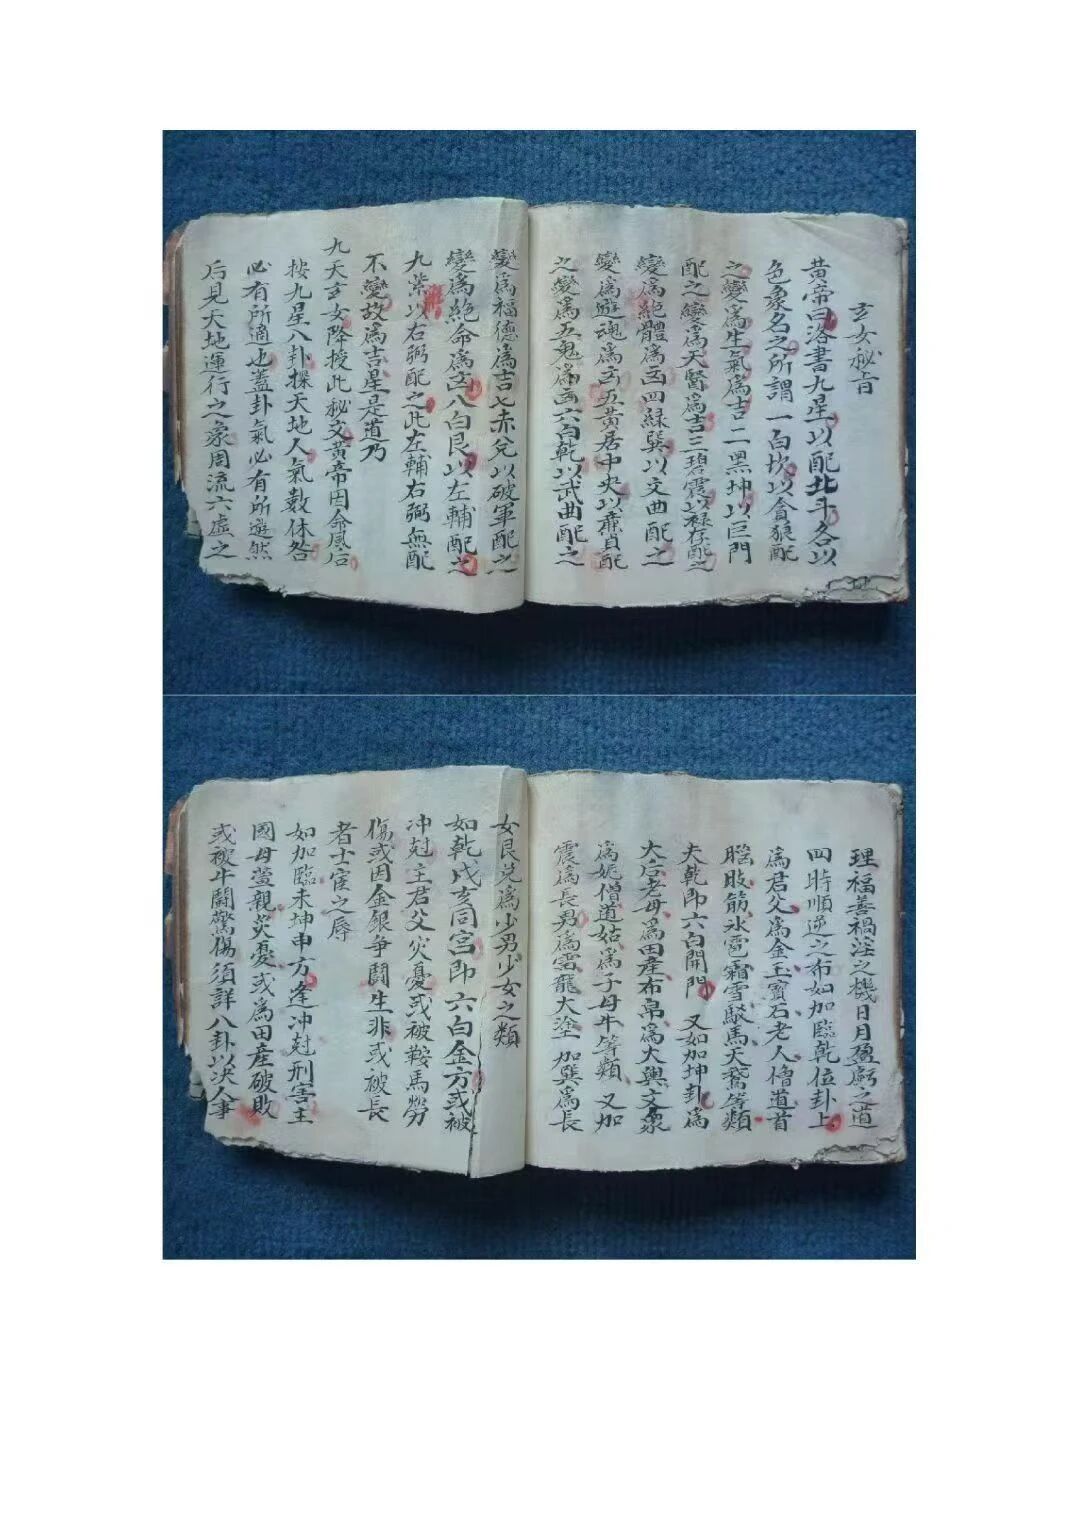 玄女秘旨
黃帝曰洛書九星以配北斗各以
色象名之所謂一白坎以貪狼配
之變爲生氣爲吉二黑坤以巨門
配之變爲天醫爲吉三碧震以禄存配之
變爲絕體爲凶四緑巽以文曲配之
變爲遊魂爲凶五黃居中央以廉貞配
之變爲五鬼爲凶六白乾以武曲配之
變爲福德爲吉七赤兌以破軍配之
變爲絕命爲凶八白艮以左輔配之
九紫以右弼配之此左輔右弼無配
不變故爲吉星是道乃
九天玄女降授此秘文黃帝因命風后
按九星八卦探天地人氣數休咎
必有所適也蓋卦氣必有所遊然
后見天地運行之象周流六虛之
理福善禍淫之機日月盈虧之道
四時順逆之布如加臨乾位卦上
爲君父爲金玉寶石老人僧道首
腦肢筋氷雹霜雪駁馬天鵞等類
夫乾即六白開門 又如加坤卦爲
大后老母爲田產布帛爲大輿文衆
爲妮僧道姑爲子母牛等類 又加
震爲長男爲雷龍大塗 加巽爲長
女艮兌爲少男少女之類
如乾戌亥同宫即六白金方或被
冲尅主君父災憂或被鞍馬勞
傷或因金銀爭鬪生非或被長
者士宦之辱
如加臨未坤申方逢冲尅刑害主
國母萱親災憂或爲田產破敗
或被牛鬪驚傷須詳八卦以決人事